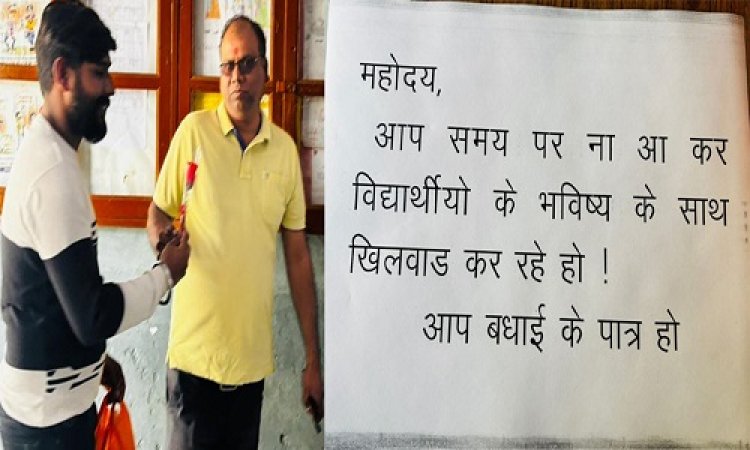 महोदय,
आप समय पर ना आ कर
विद्यार्थीयो के भविष्य के साथ
खिलवाड कर रहे हो !
आप बधाई के पात्र हो